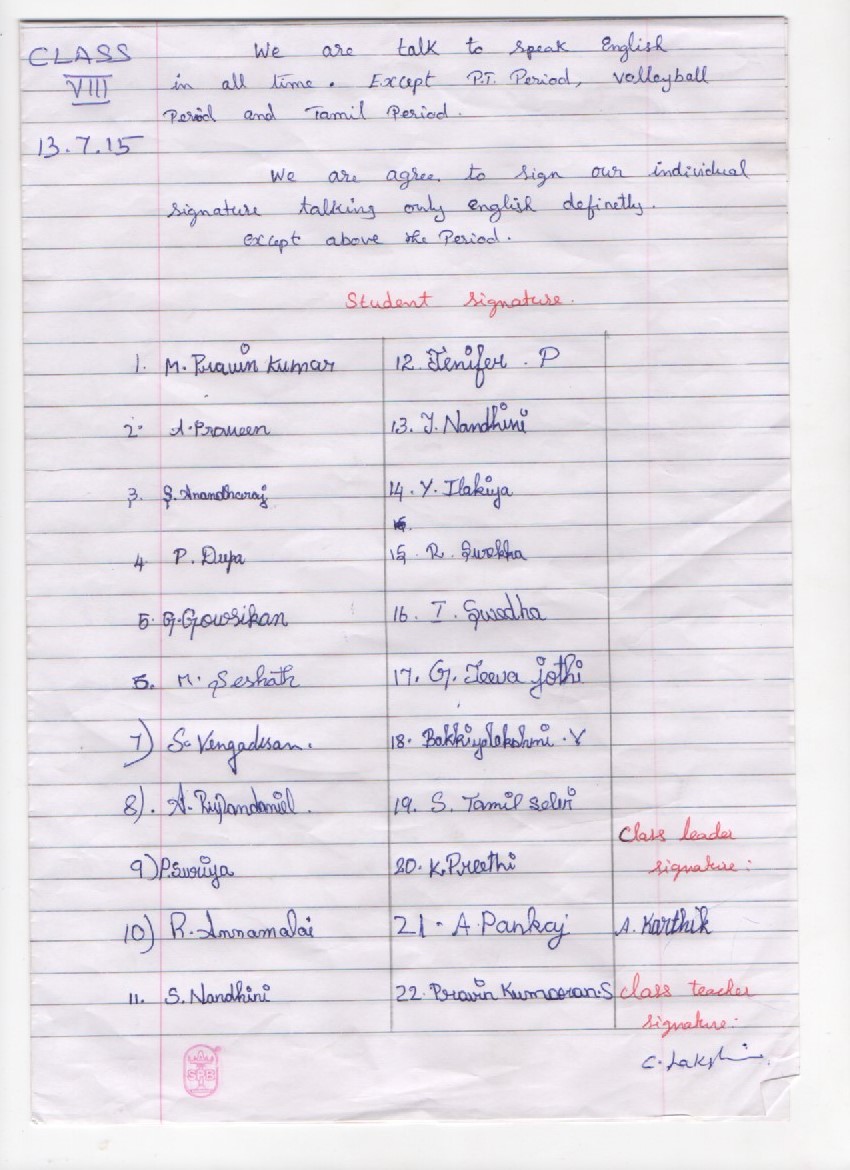 CLASS
VIII
13.7.15
We are talk to speak English
in all time. Except P.T. Period, volleyball
Period and Tamil Period.
We are agree to sign our individual
signature talking only english definetly.
except above the Period.
Student signature.
1. M. Pravin Kumar
2. A. Praveen
3. S. Anandharaj
4. P. Dupa
5. G. Gowsikan
5. M. Seshath
7) S. Vengadesan.
8). A.
9) P. Suriya
10) R. Annamalai
11. S. Nandhini
12. Jenifer. P
13. J. Nandhini
14. Y. Ilakiya
15. R. Swekha
16. I. Swedha
17. G. Jeeva jothi
18. Bakkiyalakshmi. V
19. S. Tamil selvi
20. K. Preethi
21. A. Pankaj
22. Pravin Kumaran. S
Class leader
signature:
A. Karthik
class teacher
signature:
C. Lakshmi
SPB